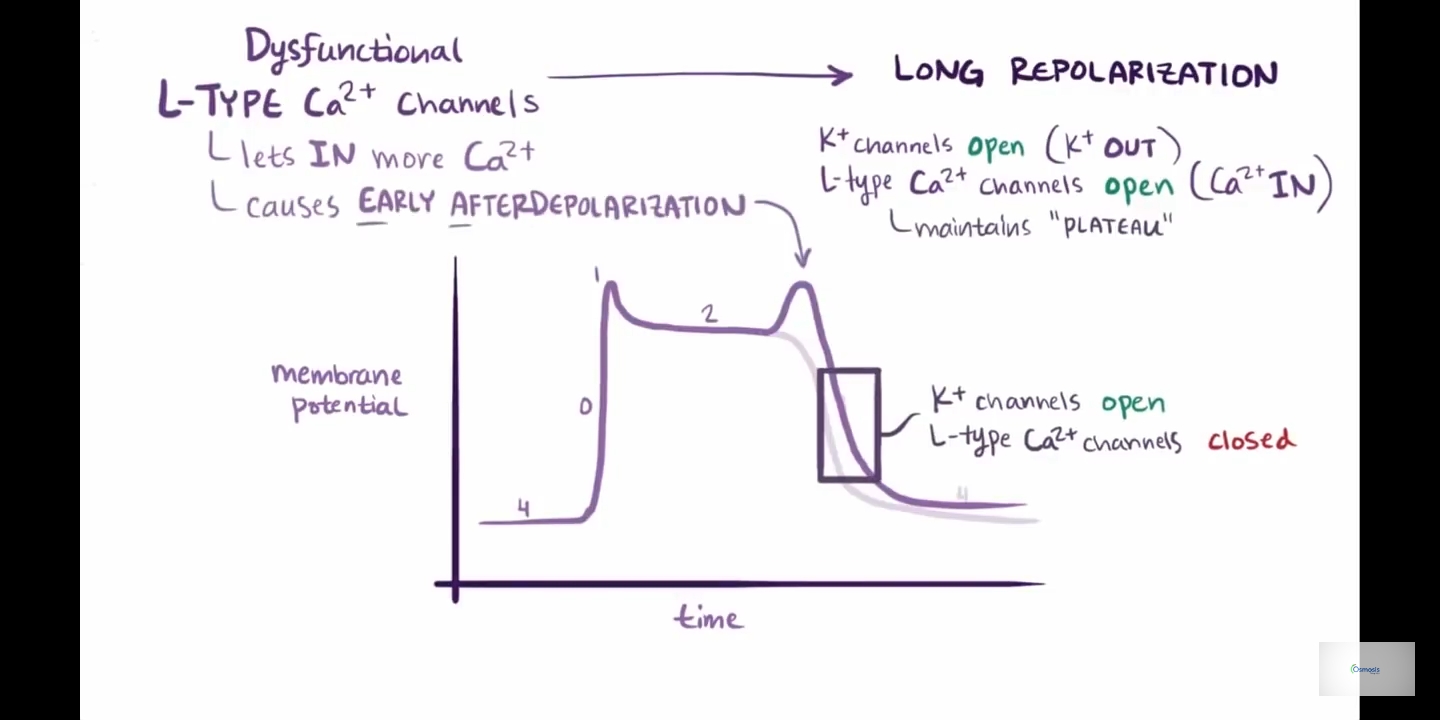 Dysfunctional
L-TYPE Ca2+ Channels
lets IN more Ca2+
causes EARLY AFTERDEPOLARIZATION
LONG REPOLARIZATION
K+ channels open (K+ OUT)
L-type Ca2+ channels open (Ca2+ IN)
maintains "PLATEAU"
1
2
0
4
4
membrane
potential
K+ channels open
L-type Ca2+ channels closed
time
Osmosis